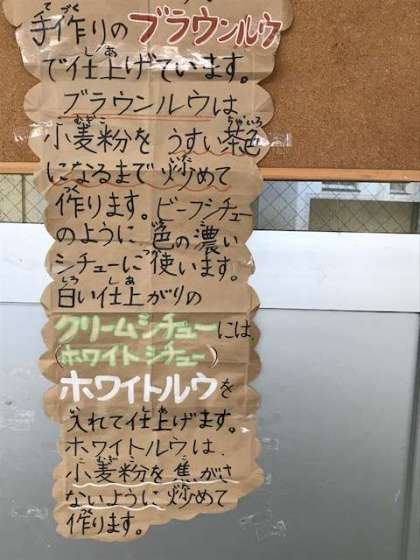 手作りのブラウンルウ
で仕上げています。
ブラウンルウは
小麦粉をうすい茶色
になるまで炒めて
作ります。ビーフシチュー
のように色の濃い
シチューに使います。
白い仕上がりの
クリームシチューには、
(ホワイトシチュー)
ホワイトルウを
入れて仕上げます。
ホワイトルウは、
小麦粉を焦がさ
ないように炒めて
作ります。